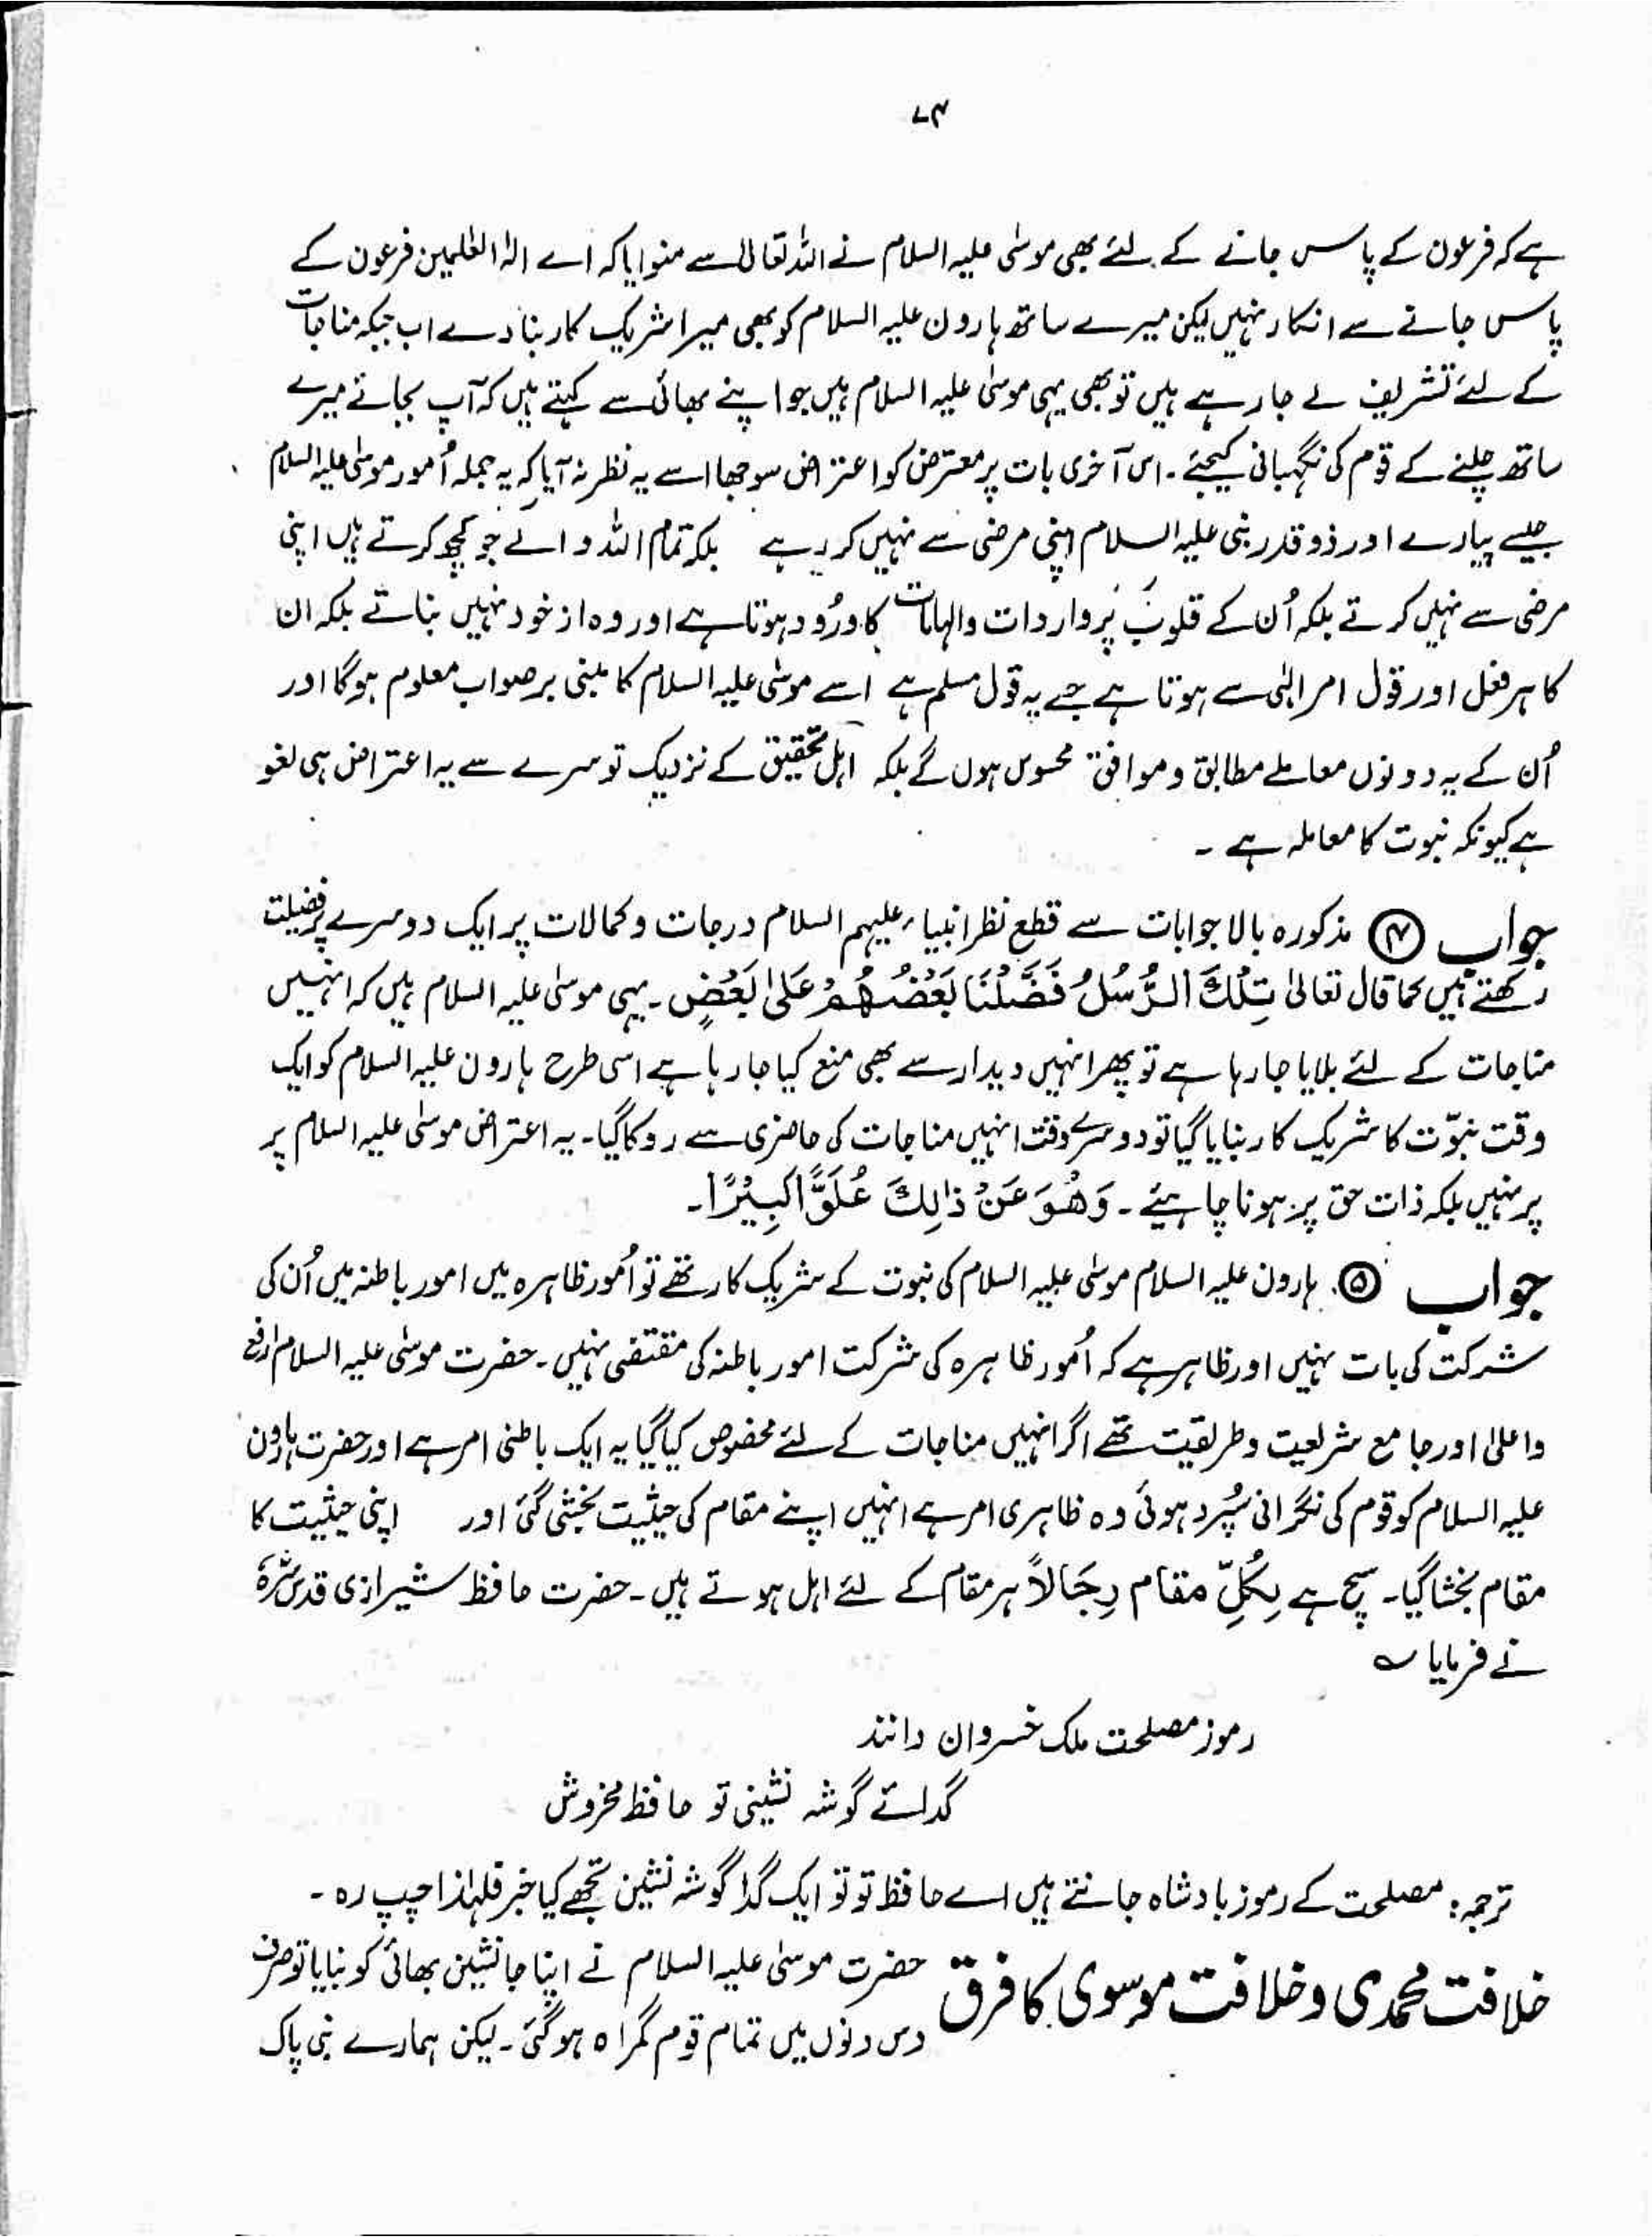 ۷۴
ہے کہ فرعون کے پاس جانے کے لئے بھی موسیٰ علیہ السلام نے اللہ تعالیٰ سے منوایا کہ اے الٰہ العٰلمین فرعون کے
پاس جانے سے انکار نہیں لیکن میرے ساتھ ہارون علیہ السلام کو بھی میرا شریک کار بنا دے اب جبکہ مناجات
کے لئے تشریف لے جا رہے ہیں تو بھی یہی موسیٰ علیہ السلام ہیں جو اپنے بھائی سے کہتے ہیں کہ آپ بجائے میرے
ساتھ چلنے کے قوم کی نگہبانی کیجئے ۔ اس آخری بات پر معترض کو اعتراض سوجھا اسے یہ نظر نہ آیا کہ یہ جملہ اُمور موسیٰ علیہ السلام
جیسے پیارے اور ذو قدر نبی علیہ السلام اپنی مرضی سے نہیں کر رہے بلکہ تمام اللہ والے جو کچھ کرتے ہیں اپنی
مرضی سے نہیں کرتے بلکہ اُن کے قلوب پر واردات والہامات کا ورُود ہوتا ہے اور وہ از خود نہیں بناتے بلکہ ان
کا ہر فعل اور قول امر الٰہی سے ہوتا ہے جسے یہ قول مسلم ہے اسے موسیٰ علیہ السلام کا مبنی بر صواب معلوم ہو گا اور
اُن کے یہ دونوں معاملے مطابق و موافق محسوس ہوں گے بلکہ اہل تحقیق کے نزدیک تو سرے سے یہ اعتراض ہی لغو
ہے کیونکہ نبوت کا معاملہ ہے ۔
جواب ④ مذکورہ بالا جوابات سے قطع نظر انبیاء علیہم السلام درجات و کمالات پر ایک دوسرے پر فضیلت
رکھتے ہیں کما قال تعالیٰ تِلْكَ الرُّسُلُ فَضَّلْنَا بَعْضُهُمْ عَلىٰ بَعْضٍ ۔ یہی موسیٰ علیہ السلام ہیں کہ انہیں
مناجات کے لئے بلایا جا رہا ہے تو پھر انہیں دیدار سے بھی منع کیا جا رہا ہے اسی طرح ہارون علیہ السلام کو ایک
وقت نبوّت کا شریک کار بنایا گیا تو دوسرے وقت انہیں مناجات کی حاضری سے روکا گیا۔ یہ اعتراض موسیٰ علیہ السلام پر
پر نہیں بلکہ ذات حق پر ہونا چاہیئے ۔ وَهُوَ عَنْ ذٰلِكَ عُلَوًّا كَبِيْرًا۔
جواب ⑤ ہارون علیہ السلام موسیٰ علیہ السلام کی نبوت کے شریک کار تھے تو اُمور ظاہرہ میں امور باطنہ میں اُن کی
شرکت کی بات نہیں اور ظاہر ہے کہ اُمور ظاہرہ کی شرکت امور باطنہ کی مقتضی نہیں ۔ حضرت موسیٰ علیہ السلام ارفع
واعلیٰ اور جامع شریعت و طریقت تھے اگر انہیں مناجات کے لئے مخصوص کیا گیا یہ ایک باطنی امر ہے اور حضرت ہارون
علیہ السلام کو قوم کی نگرانی سُپرد ہوئی وہ ظاہری امر ہے انہیں اپنے مقام کی حیثیت بخشی گئی اور اپنی حیثیت کا
مقام بخشا گیا۔ سچ ہے لِكُلِّ مقام رِجَالاً ہر مقام کے لئے اہل ہوتے ہیں ۔ حضرت حافظ شیرازی قدس سرّہٗ
نے فرمایا ؎
رموز مصلحت ملک خسروان دانند
گدائے گوشہ نشینی تو حافظ مخروش
ترجمہ: مصلحت کے رموز بادشاہ جانتے ہیں اے حافظ تو تو ایک گدا گوشہ نشین تجھے کیا خبر فلہٰذا چپ رہ ۔
خلافت محمدی و خلافت موسوی کا فرق حضرت موسیٰ علیہ السلام نے اپنا جانشین بھائی کو بنایا تو صرف
دس دنوں میں تمام قوم گمراہ ہو گئی ۔ لیکن ہمارے نبی پاک